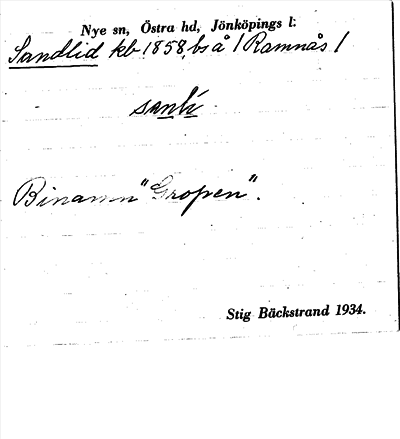 Nye sn, Östra hd, Jönköpings l:
Sandlid kb 1858, bs å / Ramnås /
Binamn "Gropen".
Stig Bäckstrand 1934.